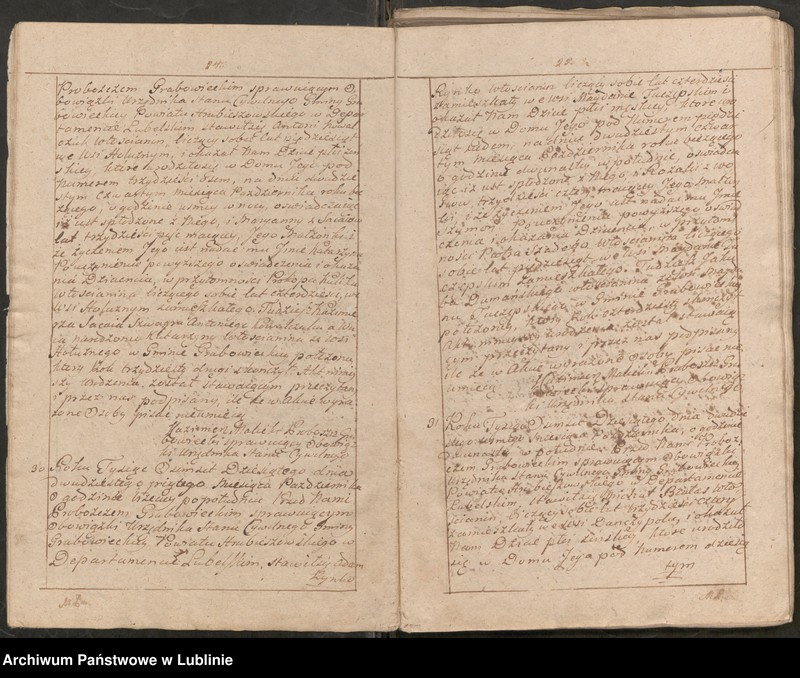 24.
Proboszczem Grabowieckim sprawuiącym O,
bowiązki Urzędnika Stanu Cywilnego Gminy Gra
bowieckiey Powiatu Hrubieszowskiego w Depar
tamencie Lubelskim, Stawił się Antoni Kowal
czuk Włościanin, liczący sobie lat
we Wsi Hołużnym, i okazał Nam Dziecię płci żeń
skiey, które urodziło się w Domu Jego pod
Numerem trzydzieści Osm, na dniu dwudzie
stym czwartym Miesiąca Października, roku bie
żącego, o godzinie Osmey w nocy, oświadczaiąc
iż iest spłodzone z Niego, i Maryanny z
lat trzydzieści pięć maiącey, Jego Małżonki i
że życzeniem Jego iest nadać mu Imię Katarzyna
Po uczynieniu powyższego oświadczenia i okaza
nia Dziecięcia, w przytomności Prokopa
Włościanina liczącego sobie lat czterdzieści, we
Wsi Hołużnym zamieszkałego. Tudzież Kazimie
rza Szwagra Antoniego Kowalczuka
Włościanina ze Wsi
Hołużnego w Gminie Grabowieckiey położoney,
który Rok trzydziesty drugi skończył. Akt niniey
szy Urodzenia, został Stawaiącym przeczytany
i przez nas podpisany, ile że w Akcie wyra
żone Osoby pisać nieumieią
Kazimierz Proboszcz Gra
bowiecki sprawuiący Obowiąz
ki Urzędnika Stanu Cywilnego
30 Roku Tysiąc Osmset Dziesiątego, dnia
Dwudziestego piątego Miesiąca Października
o godzinie trzeciey popołudniu Przed Nami
Proboszczem Grabowieckim sprawuiącym
Obowiązki Urzędnika Stanu Cywilnego Gminy
Grabowieckiey Powiatu Hrubieszowskiego w
Departamencie Lubelskim, Stawił się Adam
Rynko
Rynko Włościanin liczący sobie lat czterdzieści
zamieszkały we Wsi Maydanie Tuczępskim i
okazał Nam Dziecię płci męskiey, które uro
dziło się w Domu Jego pod Numerem pięćdzie
siąt siedem, na dniu dwudziestym czwar
tym Miesiąca Października roku bieżącego
o godzinie dwunastey w południe, oświadcza
iąc iż iest spłodzone z Niego, i Rozalii z
trzydzieści cztery maiącey Jego Małżon
ki, i że życzeniem Jego iest nadać mu Imię
Szymon. Po uczynieniu powyższego oświad
czenia i okazania Dziecięcia, w przytom
ności Pawła Włościanina liczącego
sobie lat pięćdziesiąt, we Wsi Maydanie Tu
czępskim zamieszkałego. Tudzież Jaku
ba Dumańskiego Włościanina ze Wsi Mayda
nu Tuczępskiego w Gminie Grabowieckiey
położoney, który Rok czterdziesty
Akt ninieyszy Urodzenia został Stawaią
cym przeczytany i przez nas podpisany
ile że w Akcie wyrażone Osoby pisać nie
umieią Kazimierz Proboszcz Gra
bowiecki sprawuiący Obowiąz
ki Urzędnika Stanu Cywilnego
31 Roku Tysiąc Osmset Dziesiątego dnia Dwudzie
stego Miesiąca Października, o godzinie
Dwunastey w południe Przed Nami Probosz
czem Grabowieckim sprawuiącym Obowiązki
Urzędnika Stanu Cywilnego Gminy Grabowieckiey
Powiatu Hrubieszowskiego w Departamencie
Lubelskim, Stawił się Michał Włó
ścianin, liczący sobie lat trzydzieści cztery
zamieszkały we Wsi i okazał
Nam Dziecię płci żeńskiey, które urodziło
się w Domu Jego pod Numerem
tym
Archiwum Państwowe w Lublinie